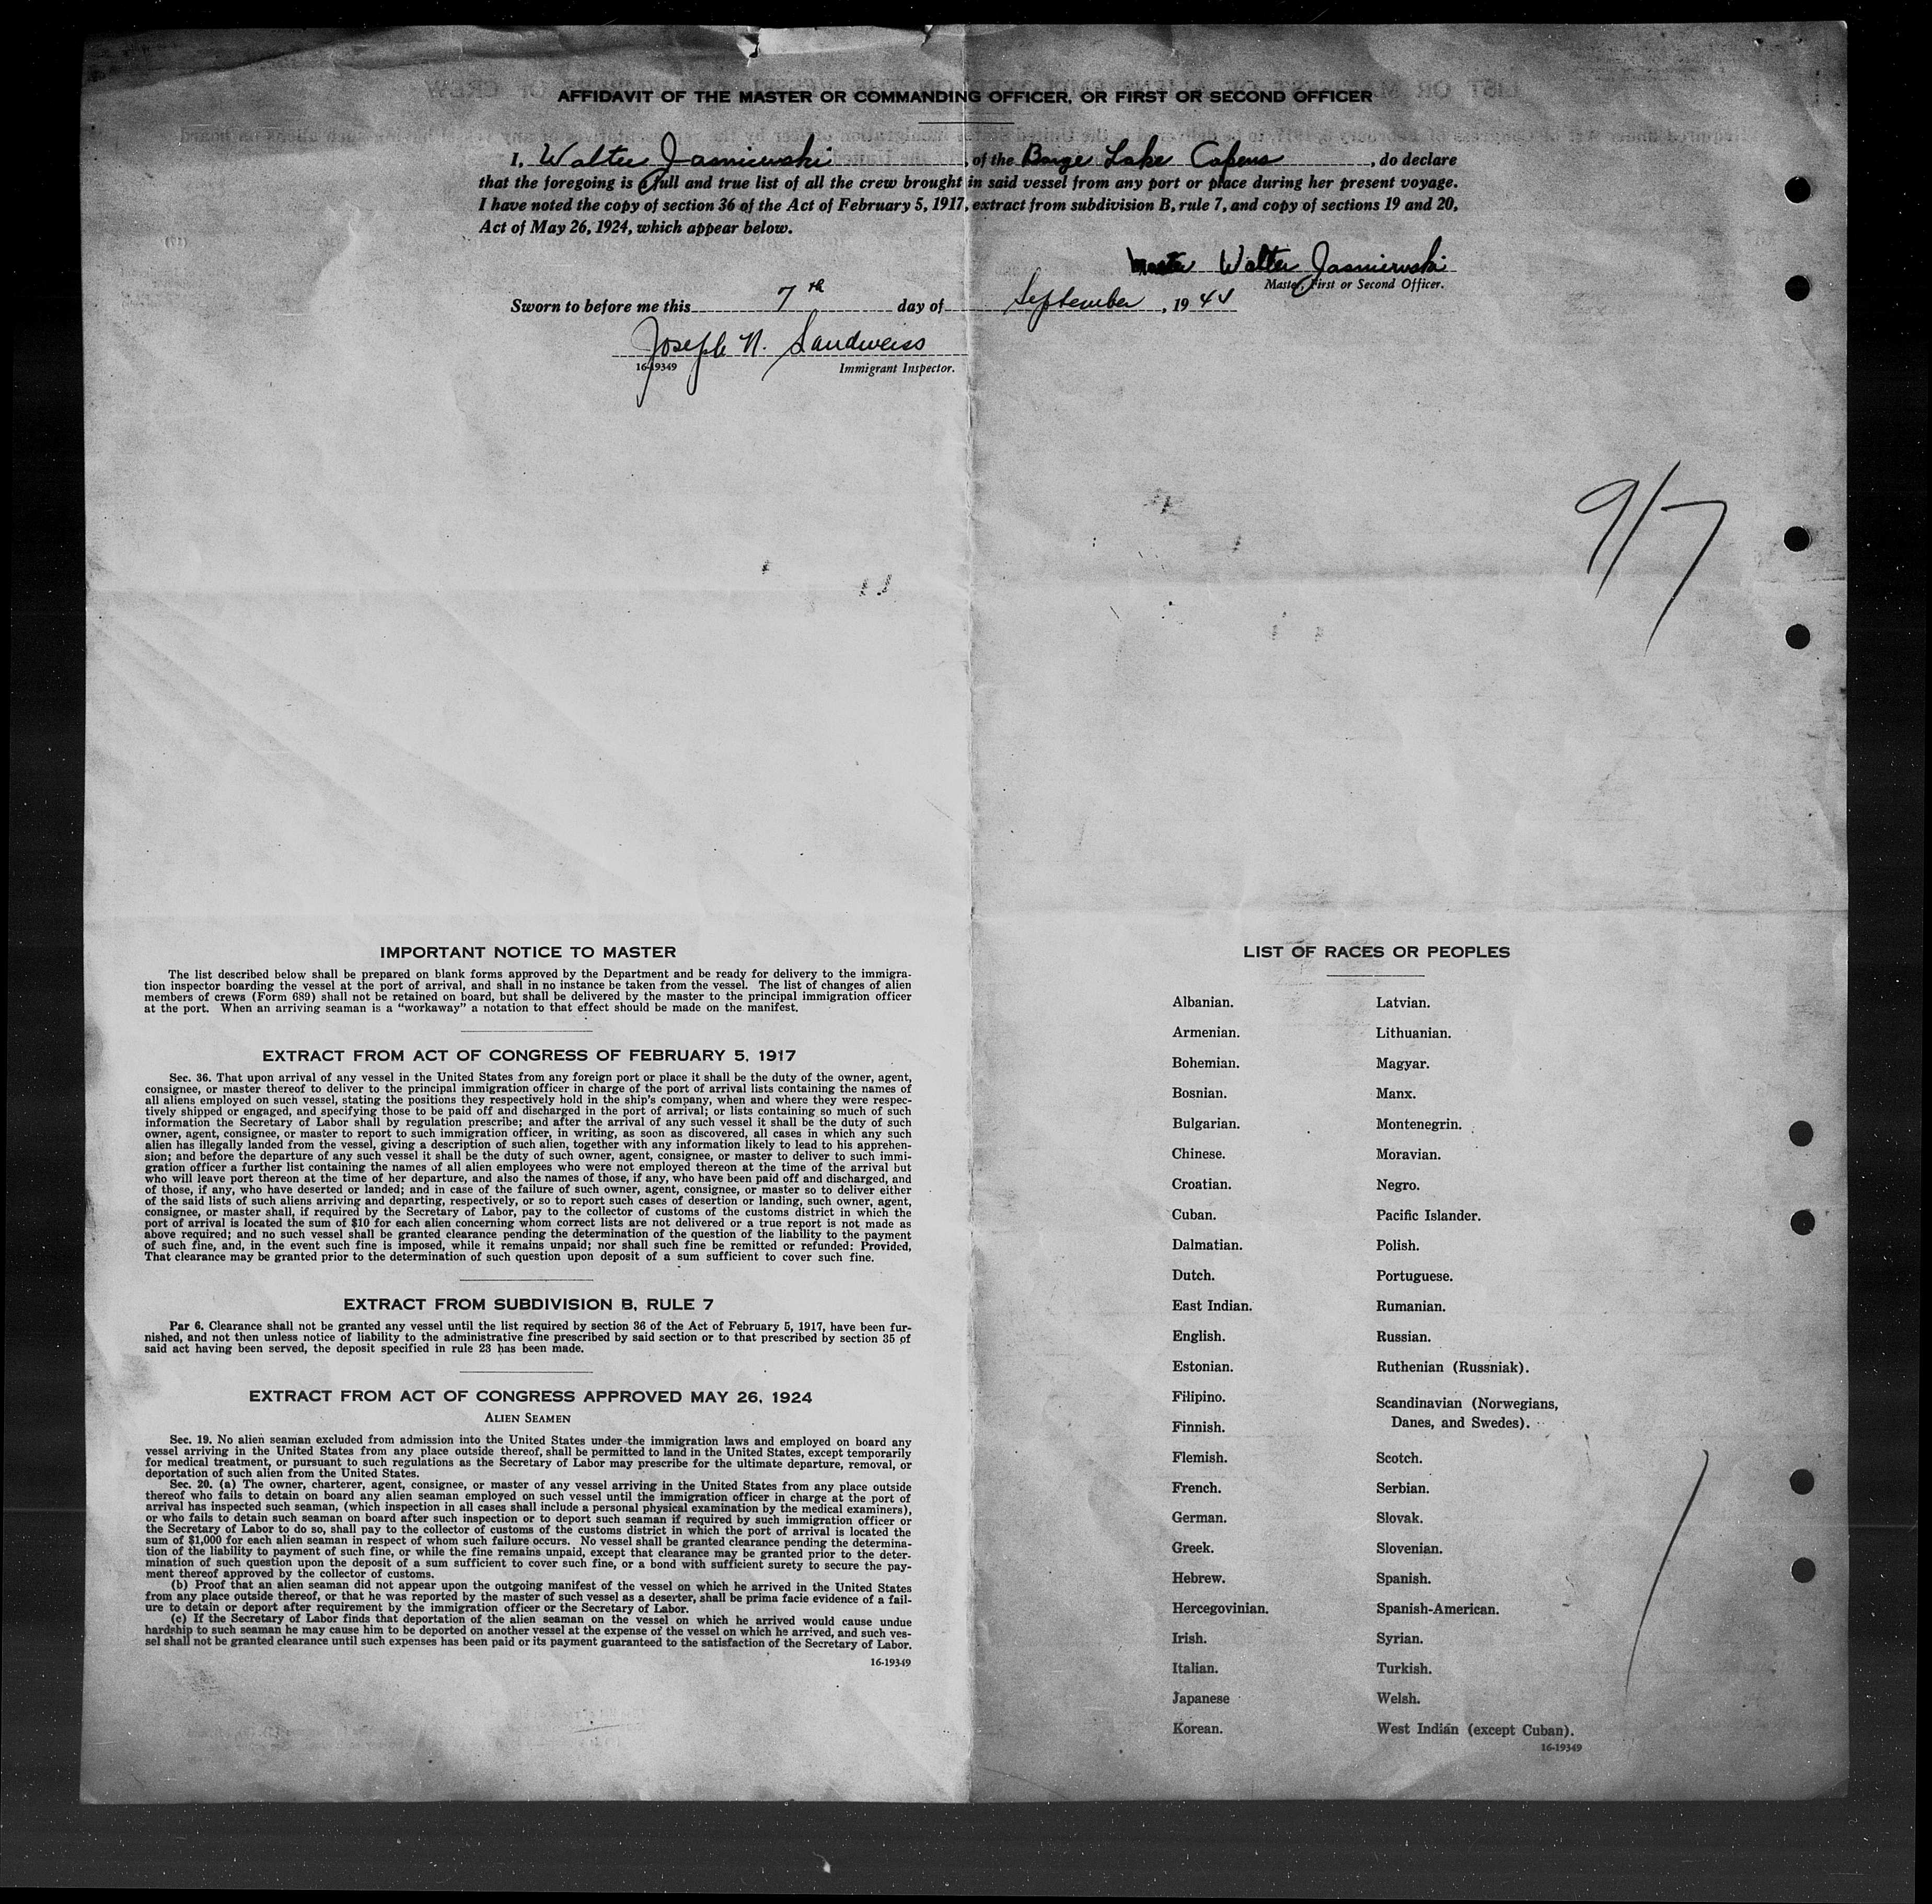 AFFIDAVIT OF THE MASTER OR COMMANDING OFFICER, OR FIRST OR SECOND OFFICER
I, Walter Jasniewski, of the Barge Lake Capens, do declare
that the foregoing is a full and true list of all the crew brought in said vessel from any port or place during her present voyage.
I have noted the copy of section 36 of the Act of February 5, 1917, extract from subdivision B, rule 7, and copy of sections 19 and 20,
Act of May 26, 1924, which appear below.
Master Walter Jasniewski
Master, First or Second Officer.
Sworn to before me this 7th day of September, 1944
Joseph N. Sandweiss
16-19349 Immigrant Inspector.
9/7
IMPORTANT NOTICE TO MASTER
The list described below shall be prepared on blank forms approved by the Department and be ready for delivery to the immigra-
tion inspector boarding the vessel at the port of arrival, and shall in no instance be taken from the vessel. The list of changes of alien
members of crews (Form 689) shall not be retained on board, but shall be delivered by the master to the principal immigration officer
at the port. When an arriving seaman is a "workaway" a notation to that effect should be made on the manifest.
EXTRACT FROM ACT OF CONGRESS OF FEBRUARY 5, 1917
Sec. 36. That upon arrival of any vessel in the United States from any foreign port or place it shall be the duty of the owner, agent,
consignee, or master thereof to deliver to the principal immigration officer in charge of the port of arrival lists containing the names of
all aliens employed on such vessel, stating the positions they respectively hold in the ship's company, when and where they were respec-
tively shipped or engaged, and specifying those to be paid off and discharged in the port of arrival; or lists containing so much of such
information the Secretary of Labor shall by regulation prescribe; and after the arrival of any such vessel it shall be the duty of such
owner, agent, consignee, or master to report to such immigration officer, in writing, as soon as discovered, all cases in which any such
alien has illegally landed from the vessel, giving a description of such alien, together with any information likely to lead to his apprehen-
sion; and before the departure of any such vessel it shall be the duty of such owner, agent, consignee, or master to deliver to such immi-
gration officer a further list containing the names of all alien employees who were not employed thereon at the time of the arrival but
who will leave port thereon at the time of her departure, and also the names of those, if any, who have been paid off and discharged, and
of those, if any, who have deserted or landed; and in case of the failure of such owner, agent, consignee, or master so to deliver either
of the said lists of such aliens arriving and departing, respectively, or so to report such cases of desertion or landing, such owner, agent,
consignee, or master shall, if required by the Secretary of Labor, pay to the collector of customs of the customs district in which the
port of arrival is located the sum of $10 for each alien concerning whom correct lists are not delivered or a true report is not made as
above required; and no such vessel shall be granted clearance pending the determination of the question of the liability to the payment
of such fine, and, in the event such fine is imposed, while it remains unpaid; nor shall such fine be remitted or refunded: Provided,
That clearance may be granted prior to the determination of such question upon deposit of a sum sufficient to cover such fine.
EXTRACT FROM SUBDIVISION B, RULE 7
Par 6. Clearance shall not be granted any vessel until the list required by section 36 of the Act of February 5, 1917, have been fur-
nished, and not then unless notice of liability to the administrative fine prescribed by said section or to that prescribed by section 35 of
said act having been served, the deposit specified in rule 23 has been made.
EXTRACT FROM ACT OF CONGRESS APPROVED MAY 26, 1924
ALIEN SEAMEN
Sec. 19. No alien seaman excluded from admission into the United States under the immigration laws and employed on board any
vessel arriving in the United States from any place outside thereof, shall be permitted to land in the United States, except temporarily
for medical treatment, or pursuant to such regulations as the Secretary of Labor may prescribe for the ultimate departure, removal, or
deportation of such alien from the United States.
Sec. 20. (a) The owner, charterer, agent, consignee, or master of any vessel arriving in the United States from any place outside
thereof who fails to detain on board any alien seaman employed on such vessel until the immigration officer in charge at the port of
arrival has inspected such seaman, (which inspection in all cases shall include a personal physical examination by the medical examiners),
or who fails to detain such seaman on board after such inspection or to deport such seaman if required by such immigration officer or
the Secretary of Labor to do so, shall pay to the collector of customs of the customs district in which the port of arrival is located the
sum of $1,000 for each alien seaman in respect of whom such failure occurs. No vessel shall be granted clearance pending the determina-
tion of the liability to payment of such fine, or while the fine remains unpaid, except that clearance may be granted prior to the deter-
mination of such question upon the deposit of a sum sufficient to cover such fine, or a bond with sufficient surety to secure the pay-
ment thereof approved by the collector of customs.
(b) Proof that an alien seaman did not appear upon the outgoing manifest of the vessel on which he arrived in the United States
from any place outside thereof, or that he was reported by the master of such vessel as a deserter, shall be prima facie evidence of a fail-
ure to detain or deport after requirement by the immigration officer or the Secretary of Labor.
(c) If the Secretary of Labor finds that deportation of the alien seaman on the vessel on which he arrived would cause undue
hardship to such seaman he may cause him to be deported on another vessel at the expense of the vessel on which he arrived, and such ves-
sel shall not be granted clearance until such expenses has been paid or its payment guaranteed to the satisfaction of the Secretary of Labor.
16-19349
LIST OF RACES OR PEOPLES
Albanian.
Armenian.
Bohemian.
Bosnian.
Bulgarian.
Chinese.
Croatian.
Cuban.
Dalmatian.
Dutch.
East Indian.
English.
Estonian.
Filipino.
Finnish.
Flemish.
French.
German.
Greek.
Hebrew.
Hercegovinian.
Irish.
Italian.
Japanese
Korean.
Latvian.
Lithuanian.
Magyar.
Manx.
Montenegrin.
Moravian.
Negro.
Pacific Islander.
Polish.
Portuguese.
Rumanian.
Russian.
Ruthenian (Russniak).
Scandinavian (Norwegians,
Danes, and Swedes).
Scotch.
Serbian.
Slovak.
Slovenian.
Spanish.
Spanish-American.
Syrian.
Turkish.
Welsh.
West Indian (except Cuban).
16-19349